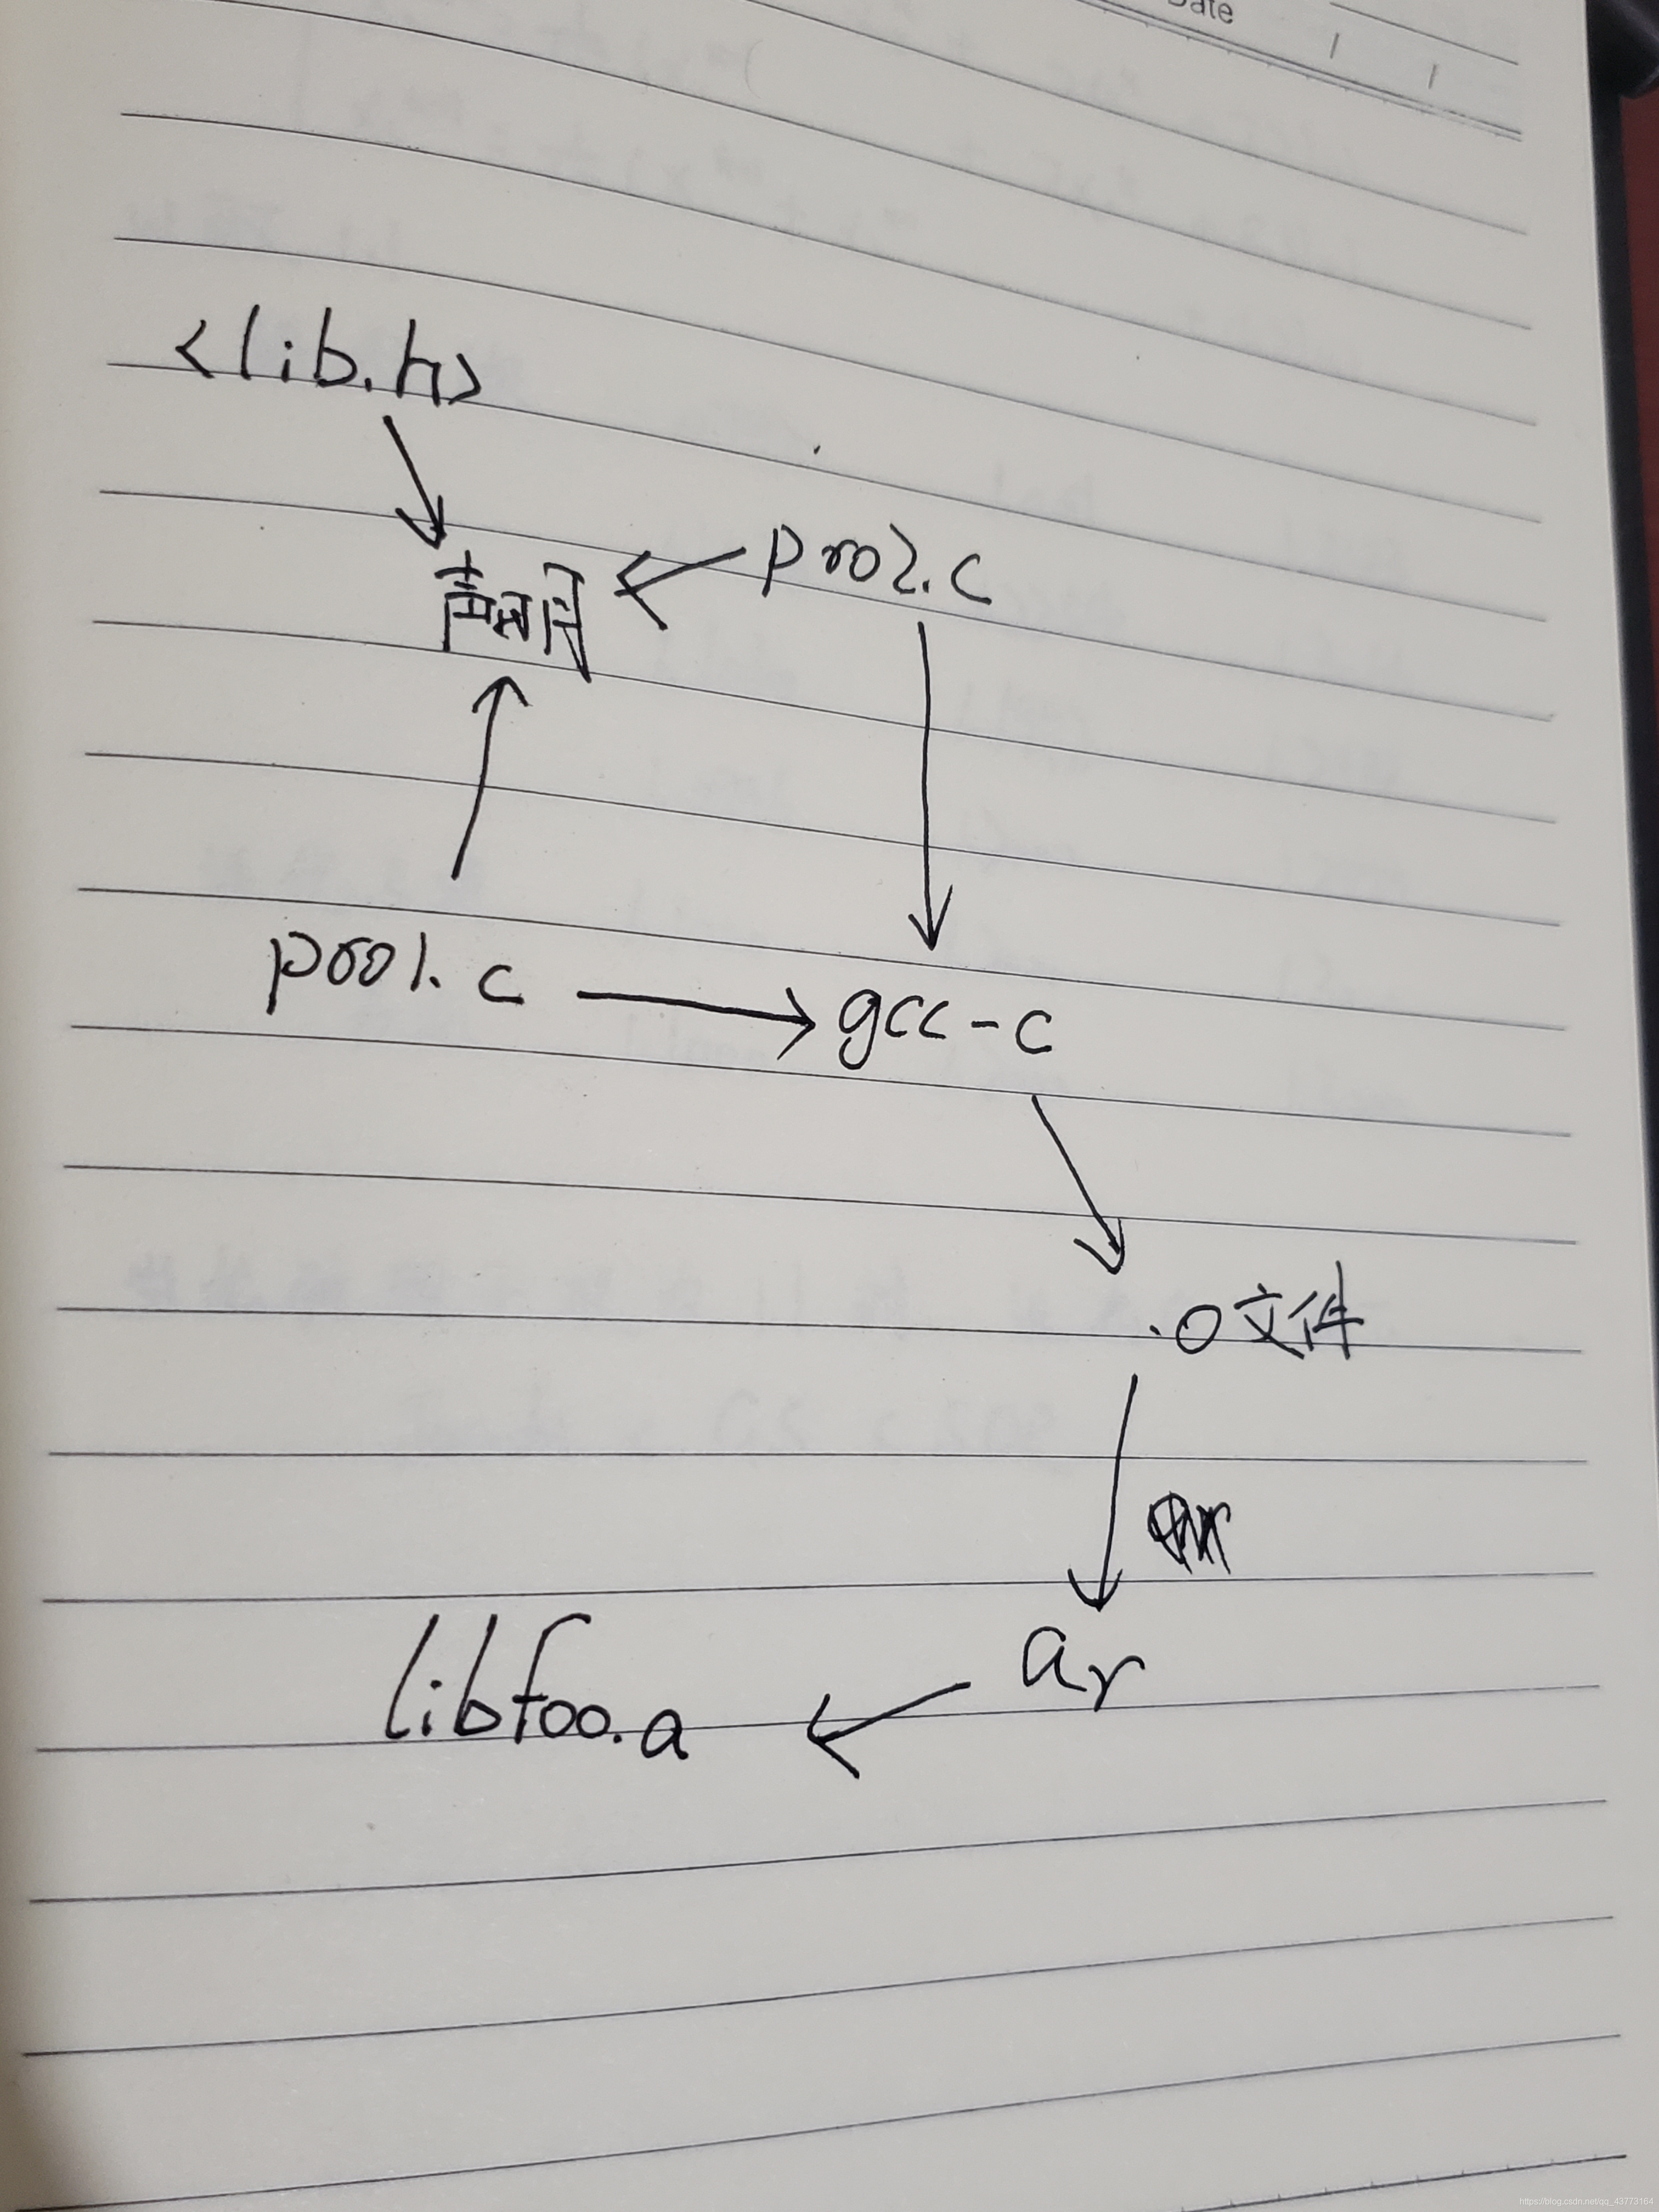 Date
<lib.h>
pro2.c
声明
pro1.c
gcc-c
.o文件
ar
libfoo.a
https://blog.csdn.net/qq_43773164